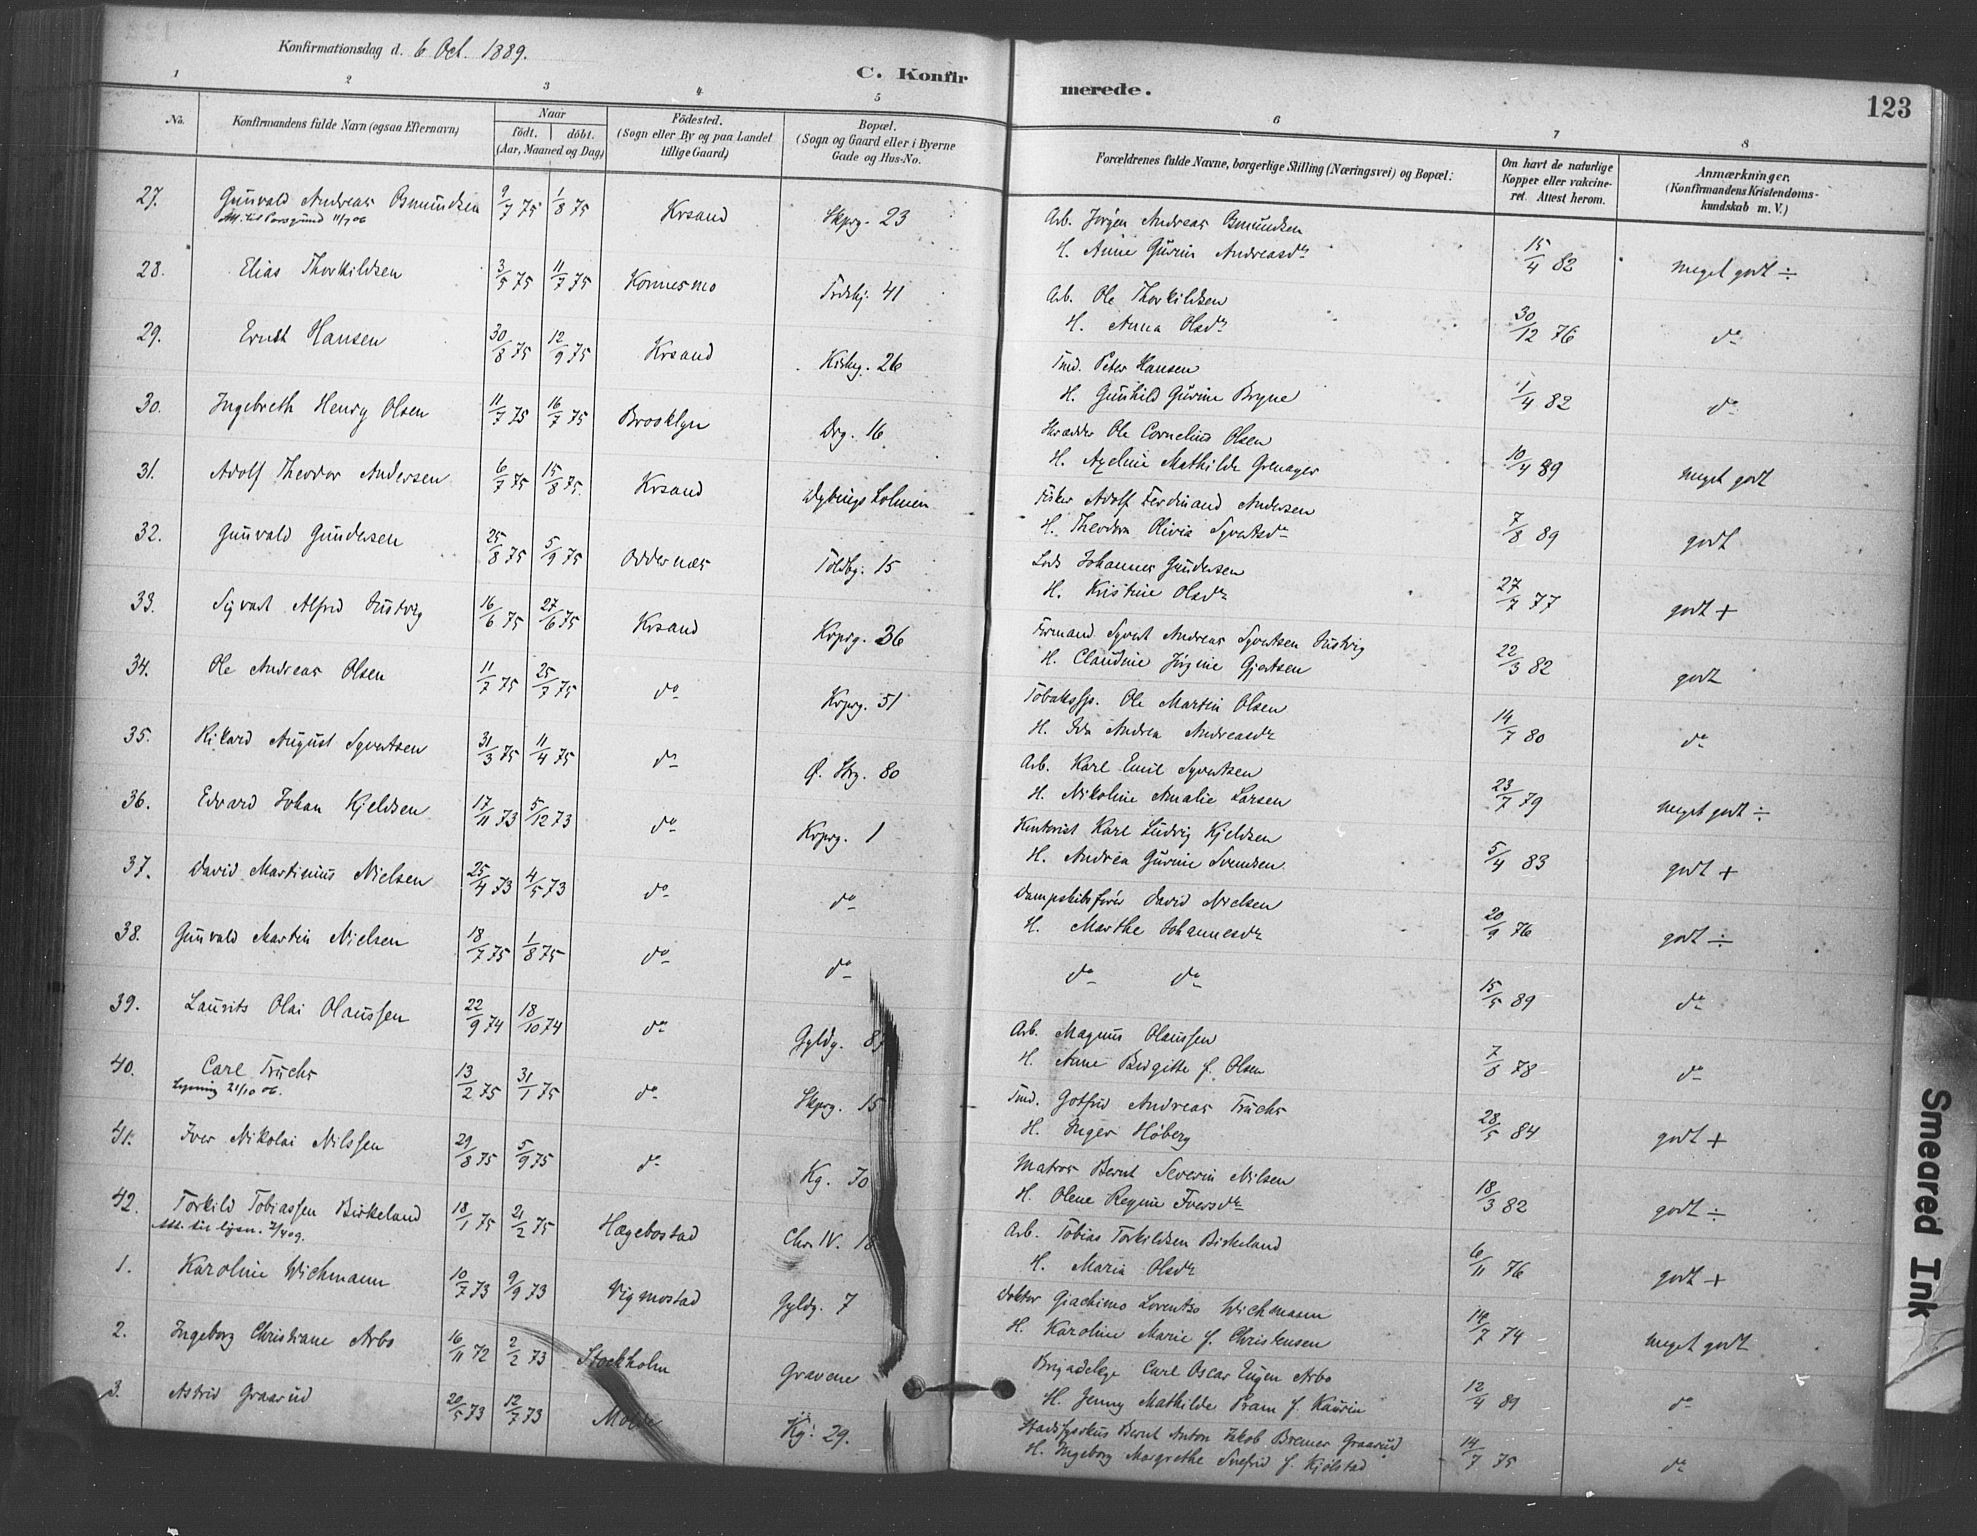 Konfirmationsdag d. 6 Oct. 1889.
C. Konfirmerede.
123
1 2 3 4 5 6 7 8
No.
Konfirmandens fulde Navn (ogsaa Efternavn)
Naar
født. døbt.
(Aar, Maaned og Dag)
Fødested.
(Sogn eller By og paa Landet
tillige Gaard)
Bopæl.
(Sogn og Gaard eller i Byerne
Gade og Hus-No.
Forældrenes fulde Navne, borgerlige Stilling (Næringsvei) og Bopæl.
Om havt de naturlige
Kopper eller vakcine-
ret. Attest herom.
Anmærkninger.
(Konfirmandens Kristendoms-
kundskab m. V.)
27. Gunvald Andreas Osmundsen 9/7 75 1/8 75 Krsand Skprg. 23 Arb. Jørgen Andreas Osmundsen
Att. til Porsgrund 11/7 06 H. Anne Gurine Andreasdr 15/4 82 meget godt ÷
28. Elias Thorkildsen 3/5 75 11/7 75 Konnesmo Frdskj. 41 Arb. Ole Thorkildsen
H. Anna Olsdr 30/12 76 do
29. Ernst Hansen 30/8 75 12/9 75 Krsand Kirkeg. 26 Tmd. Peter Hansen
H. Gunhild Gurine Bryne 1/4 82 do
30. Ingebreth Henry Olsen 11/7 75 16/7 75 Brooklyn Drg. 16 Skrædder Ole Cornelius Olsen
H. Axeline Mathilde Grenager 10/4 89 meget godt
31. Adolf Theodor Andersen 6/7 75 15/8 75. Krsand Dybings Holmen Fisker Adolf Ferdinand Andersen
H. Theodora Olivia Syvertsdr 7/8 89 godt
32. Gunvald Gundersen 25/8 75 5/9 75 Oddernæs Toldbg. 15 Lods Johannes Gundersen
H. Kristine Olsdr 27/7 77 godt +
33. Sigvart Alfred 16/6 75 27/6 75 Krsand Krprg. 36 Formand Syvert Andreas Syvertsen
H. Claudine Jörgine Gjertsen 22/3 82 godt
34. Ole Andreas Olsen 11/7 75 25/7 75 do Krprg. 51 Tobaksfp. Ole Martin Olsen
H. Ida Andrea Andreasdr 14/7 80 do
35. Rikard August Syvertsen 31/3 75 11/4 75 do Ø. Strg. 80 Arb. Karl Emil Syvertsen
H. Nikoline Amalie Larsen 23/7 79 meget godt ÷
36. Edvard Johan Kjeldsen 17/11 73 5/12 73 do Krprg. 1 Kontorist Karl Ludvig Kjeldsen
H. Andrea Gurine Svendsen 5/4 83 godt +
37. David Martinius Nielsen 25/4 73 4/5 73 do do Dampskibsfører David Nielsen
H. Marthe Johannesdr 20/9 76 godt ÷
38. Gunvald Martin Nielsen 18/7 75 1/8 75 do do do do 15/5 89 do
39. Laurits Olai Olaussen 22/9 74 18/10 74 do Gyldg. 87 Arb. Magnus Olaussen
H. Anne Birgitte f. Olsen 7/8 78 do
40. Carl Fuchs 13/2 75 31/1 75 do Skprg. 15 Tmd. Gotfred Andreas Fuchs
Lysning 21/10 06. H. Inger Höberg 28/5 84 godt +
41. Iver Nikolai Nilssen 29/8 75 5/9 75 do Kg. 70 Matros Bernt Severin Nilsen
H. Olene Regine Iversdr 18/3 82 godt ÷
42. Torkild Tobiassen Birkeland 18/1 75 21/2 75 Hægebostad Chr IV. 18 Arb. Tobias Torkildsen Birkeland
Att. til lysn. 2/4 09. H. Maria Olsdr 6/11 76 godt +
1. Karoline Wichmann 10/7 73 9/9 73 Vigmostad Gyldg. 7 Doktor Giachimo Lorentso Wichmann
H. Karoline Marie f. Christensen 14/7 74 meget godt
2. Ingeborg Christiane Arbo 16/11 72 2/2 73 Stockholm Gravene Brigadelæge Carl Oscar Eugen Arbo
H. Jenny Mathilde Pram f. Kaurin 12/4 89 do
3. Astrid Graarud 20/5 73 12/7 73 Molde Kg. 29. Stadsfysikus Bernt Anton Jakob Bremer Graarud
H. Ingeborg Margrethe f. Kjölstad 14/7 75 do
Smeared Ink